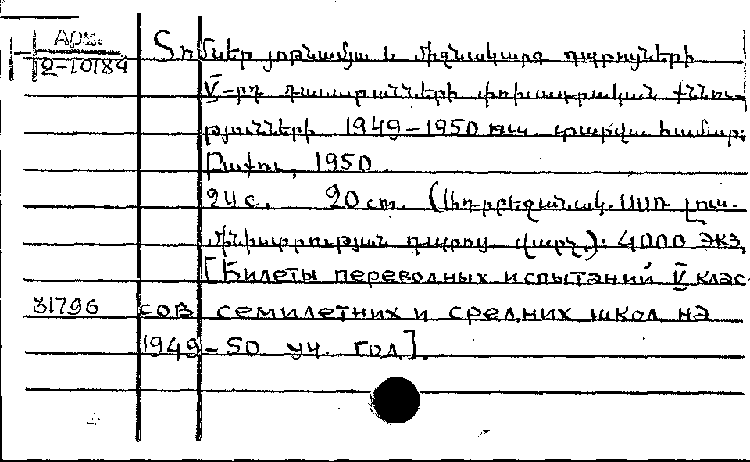 Арм.
2-10184
Տոմսեր յոթնամյա և միջնակարգ դպրոցների
V-րդ դասարանների փոխադրական քննու-
թյունների 1949-1950 ուս. տարվա համար:
Բաքու, 1950.
24 с. 20 см. (Ադրբեջանակ. ՍՍՌ լուս.
մինիստրության դպրոց. վարչ.). 4000 экз.
[Билеты переводных испытаний V клас-
31796 сов семилетних и средних школ на
1949-50 уч. год].